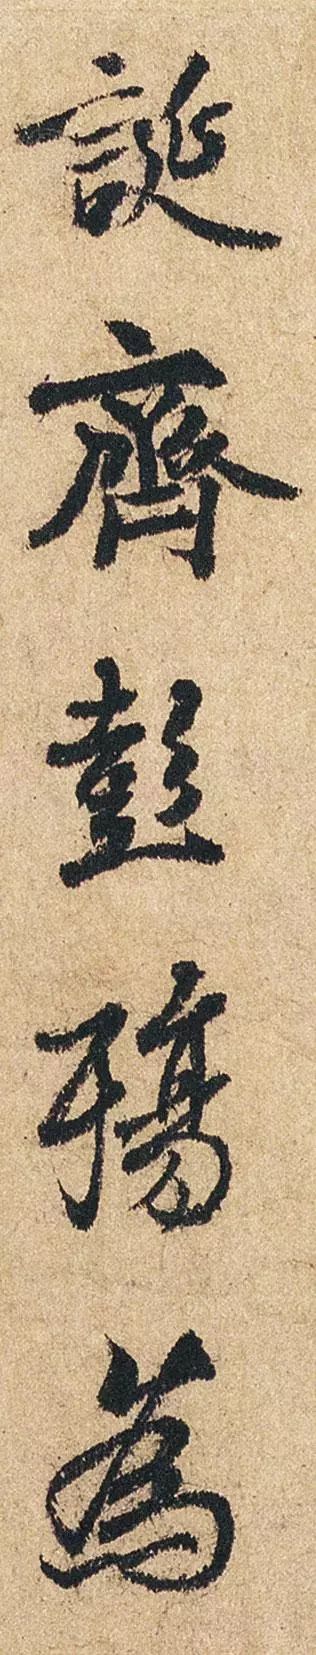 誕齊彭殤為